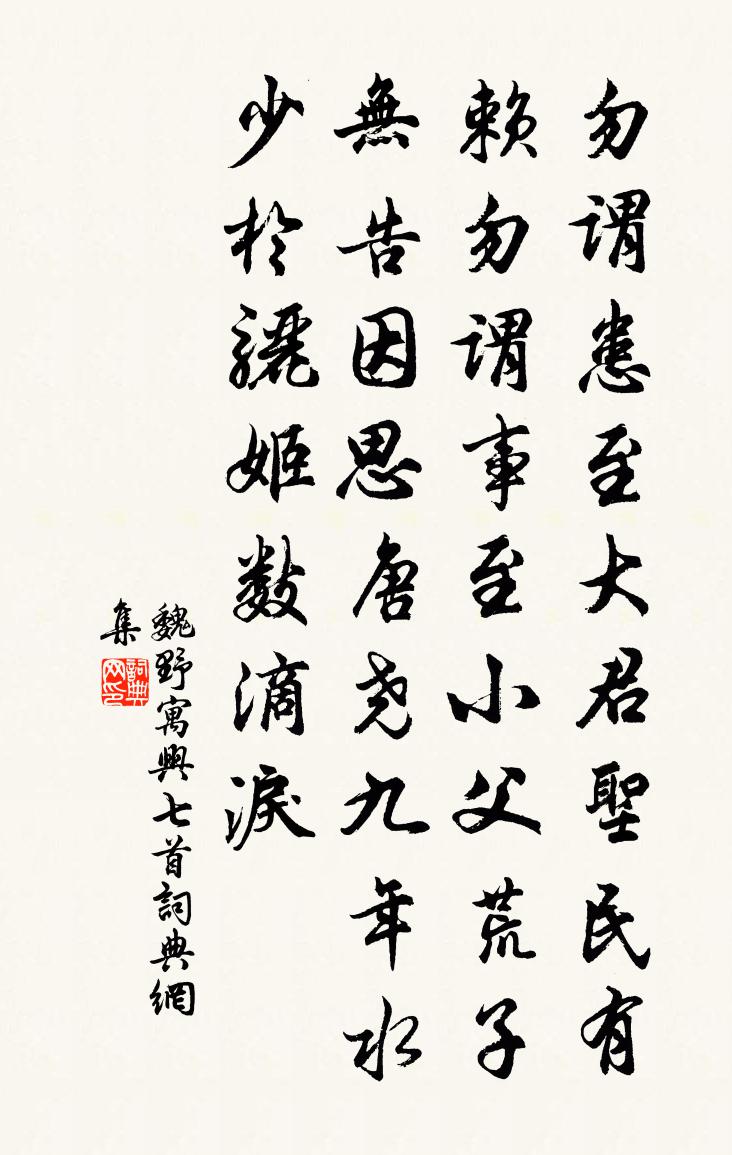 勿謂患至大君聖民有
賴勿謂事至小父荒子
無告因思唐尧九年水
少於驪姬数滴淚
魏野寓興七首詞典網
集
詞典
网印